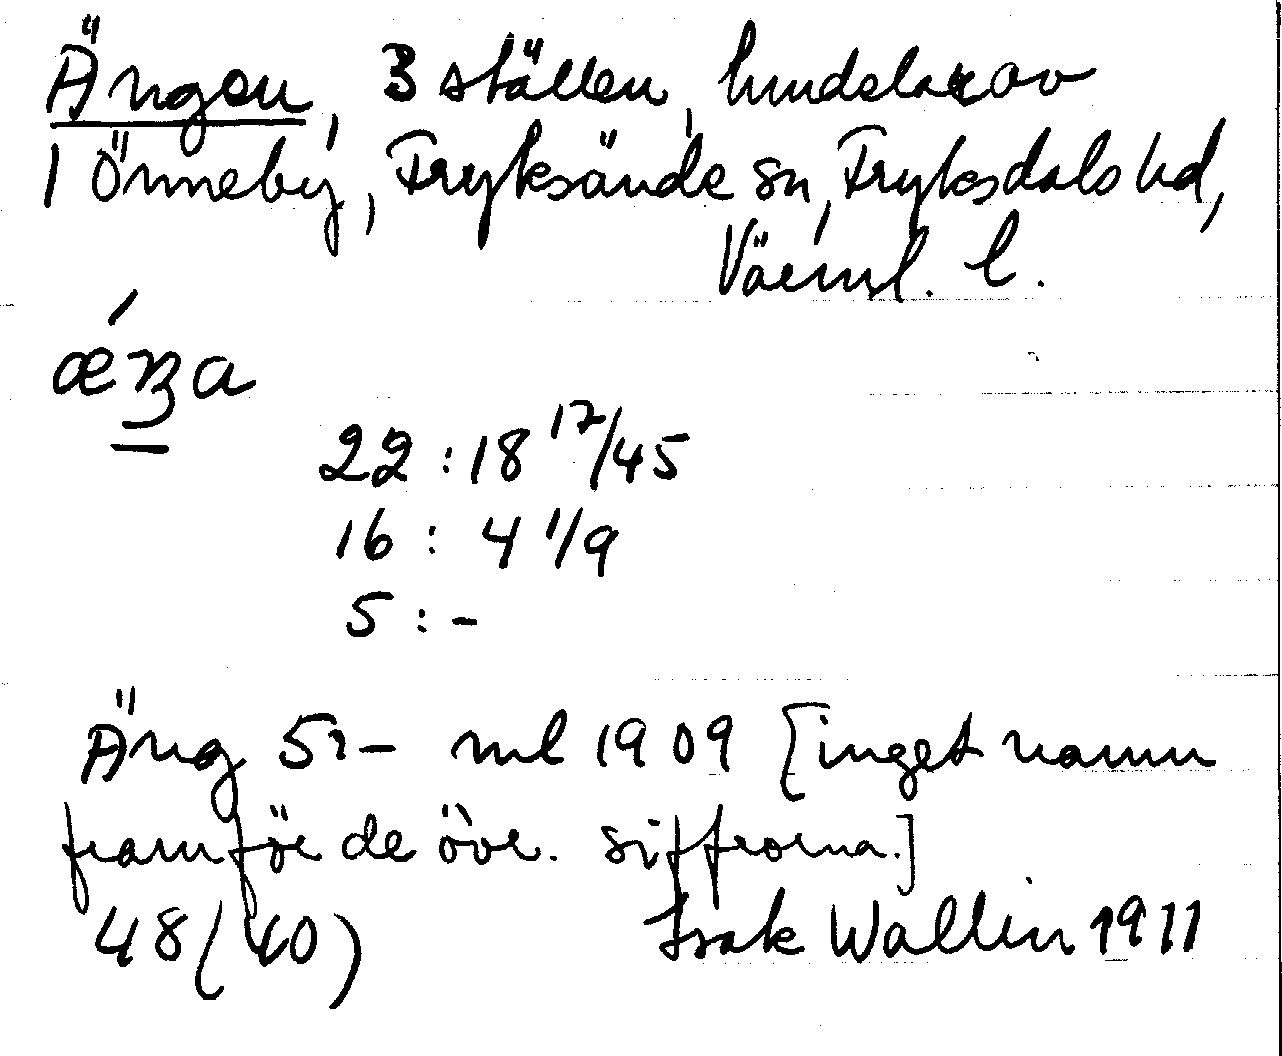 Ängen, 3 ställen, hundelar av
1 Önneby, Fryksände sn, Fryksdals hd,
Värml. l.
ǽŋa
22 : 18 17/45
16 : 4 1/9
5 : –
Äng 5:– ml 1909 [inget namn
framför de övr. siffrorna.]
48 (40) Isak Wallin 1911